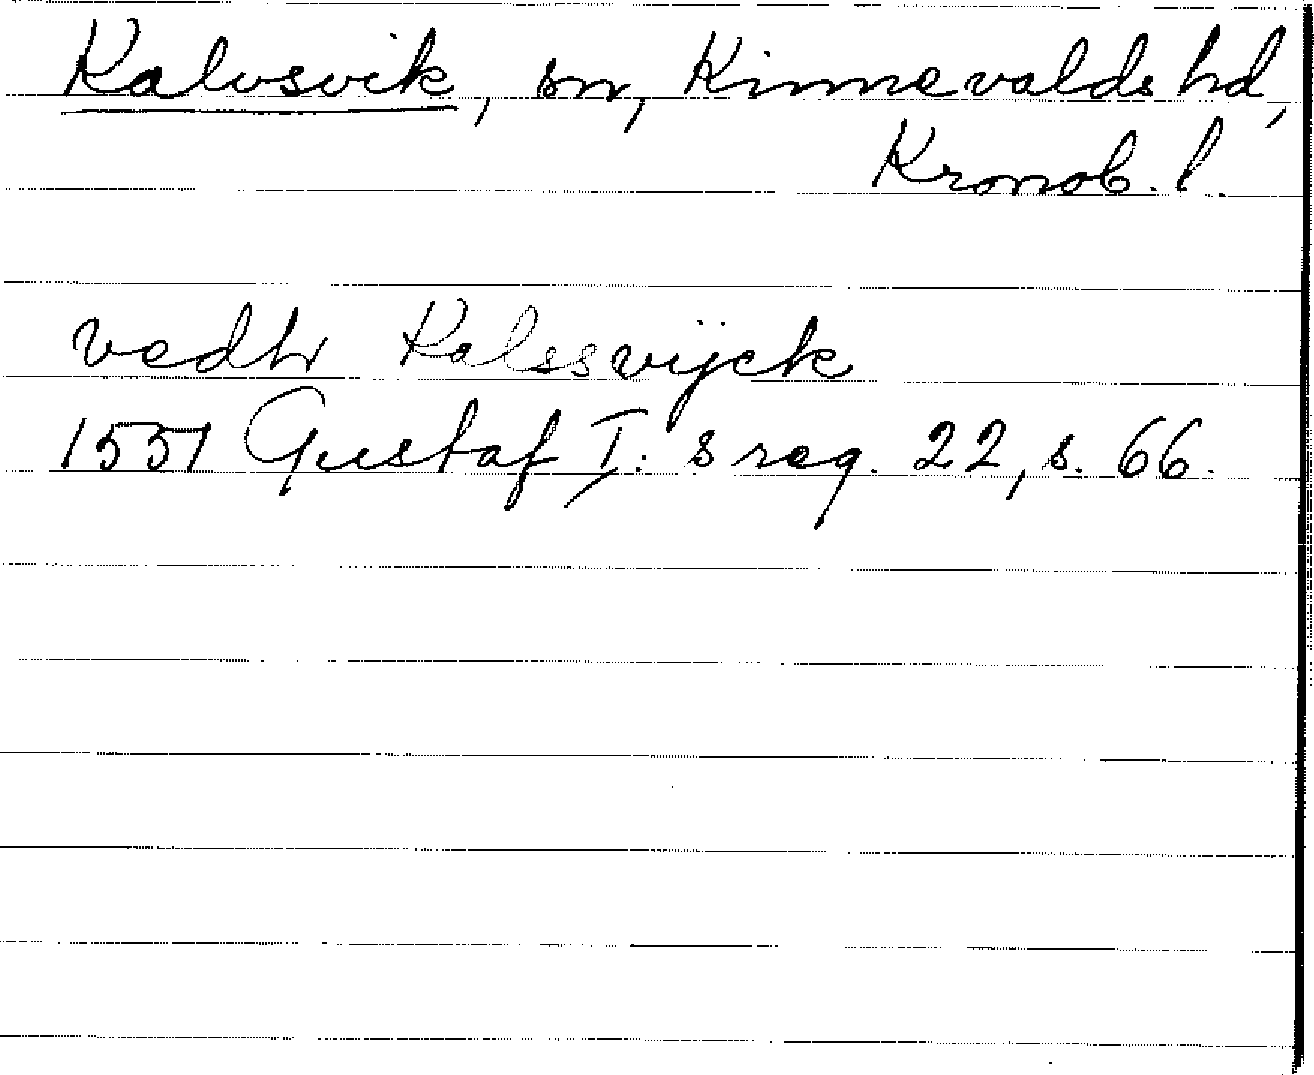 Kalvsvik, sn, Kinnevalds hd,
Kronob. l.
vedh Kalssvijck
1551 Gustaf I:s reg. 22, s. 66.